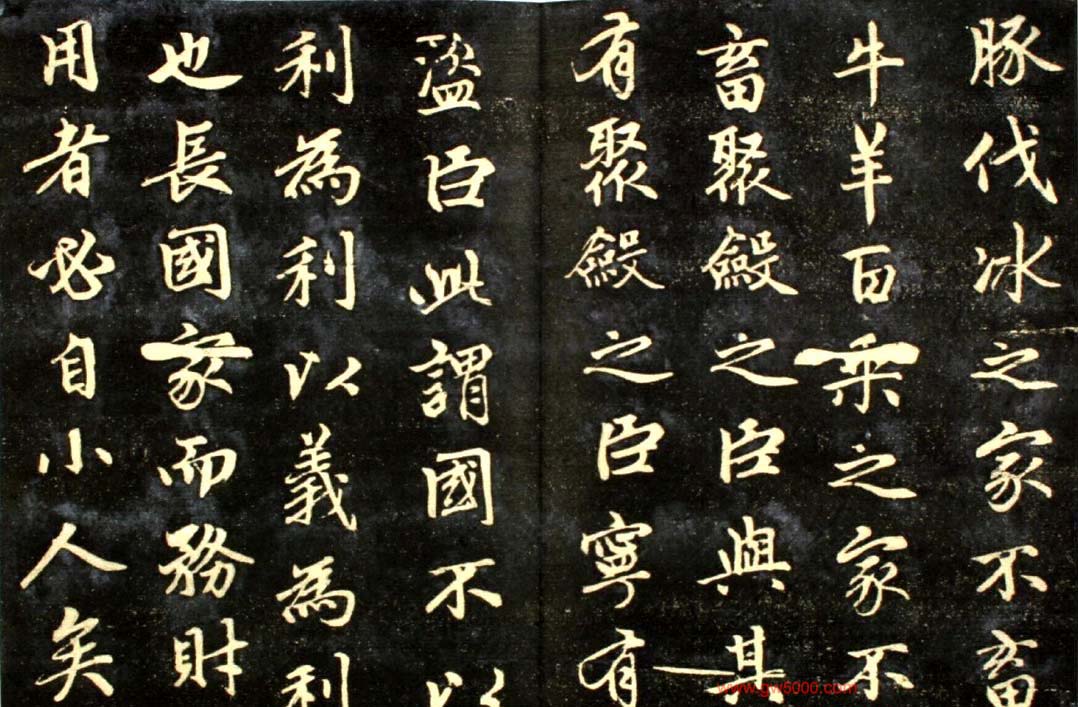 豚伐冰之家不畜
牛羊百乘之家不
畜聚斂之臣與其
有聚斂之臣寧有
盜臣此謂國不以
利為利以義為利
也長國家而務財
用者必自小人矣
www.gw5000.com